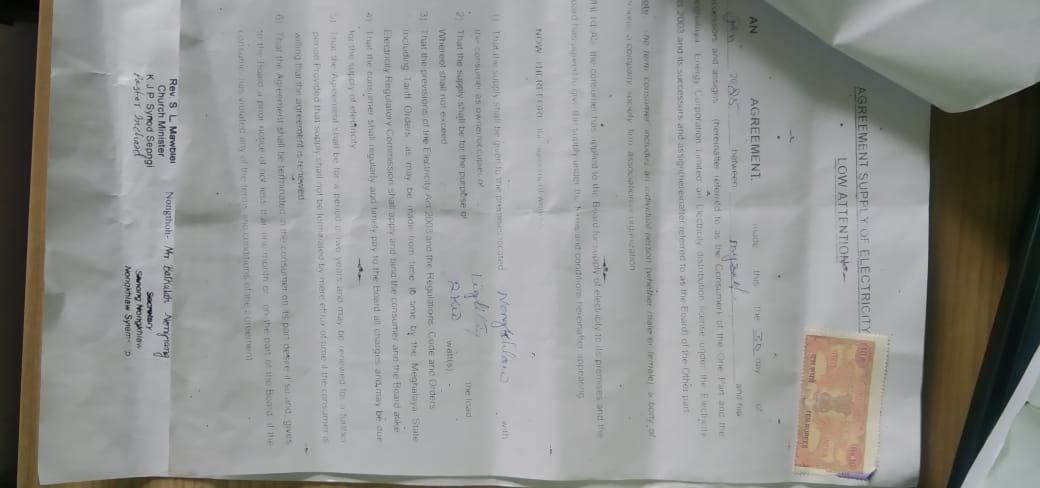 AGREEMENT SUPPLY OF ELECTRICITY
LOW ATTENTION
TEN RUPEES
AN AGREEMENT, made this the 30 day of
Jan 2025 between myself and his
successors and assigns (hereinafter referred to as the Consumer) of the One Part and the
Meghalaya Energy Corporation Limited an Electricity distribution license under the Electricity
Act 2003 and its successors and assigns(hereinafter referred to as the Board) of the Other part
The term consumer includes an individual person (whether male or female) a body of
a company society firm association or organization
the consumer has applied to the Board for supply of electricity to its premises and the
Board has agreed to give the supply under the terms and conditions hereinafter appearing
NOW THEREFORE the agreement
1) That the supply shall be given to the premises located Nongkhlaw with
the consumer as owner/occupier of
2) That the supply shall be for the purpose of Lighting the load
Whereof shall not exceed 2KW watt(s).
3) That the previsions of the Electricity Act 2003 and the Regulations Code and Orders
Including Tariff Orders as may be made from time to time by the Meghalaya State
Electricity Regulatory Commission shall apply and bind the consumer and the Board alike
4) That the consumer shall regularly and timely pay to the Board all charges and may be due
for the supply of electricity
5) That the Agreement shall be for a period of two years and may be renewed for a further
period Provided that supply shall not be terminated by mere efflux of time if the consumer is
willing that the agreement is renewed
6) That the Agreement shall be terminated if the consumer on its part desire it so and gives
to the Board a prior notice of not less than one month or on the part of the Board if the
consumer has violated any of the terms and conditions of the agreement
Rev. S. L. Mawblei
Church Minister
K.J.P Synod Sepngi
Nongthoh:- Mr
Secretary
Nongkhlaw
Nongkhlaw